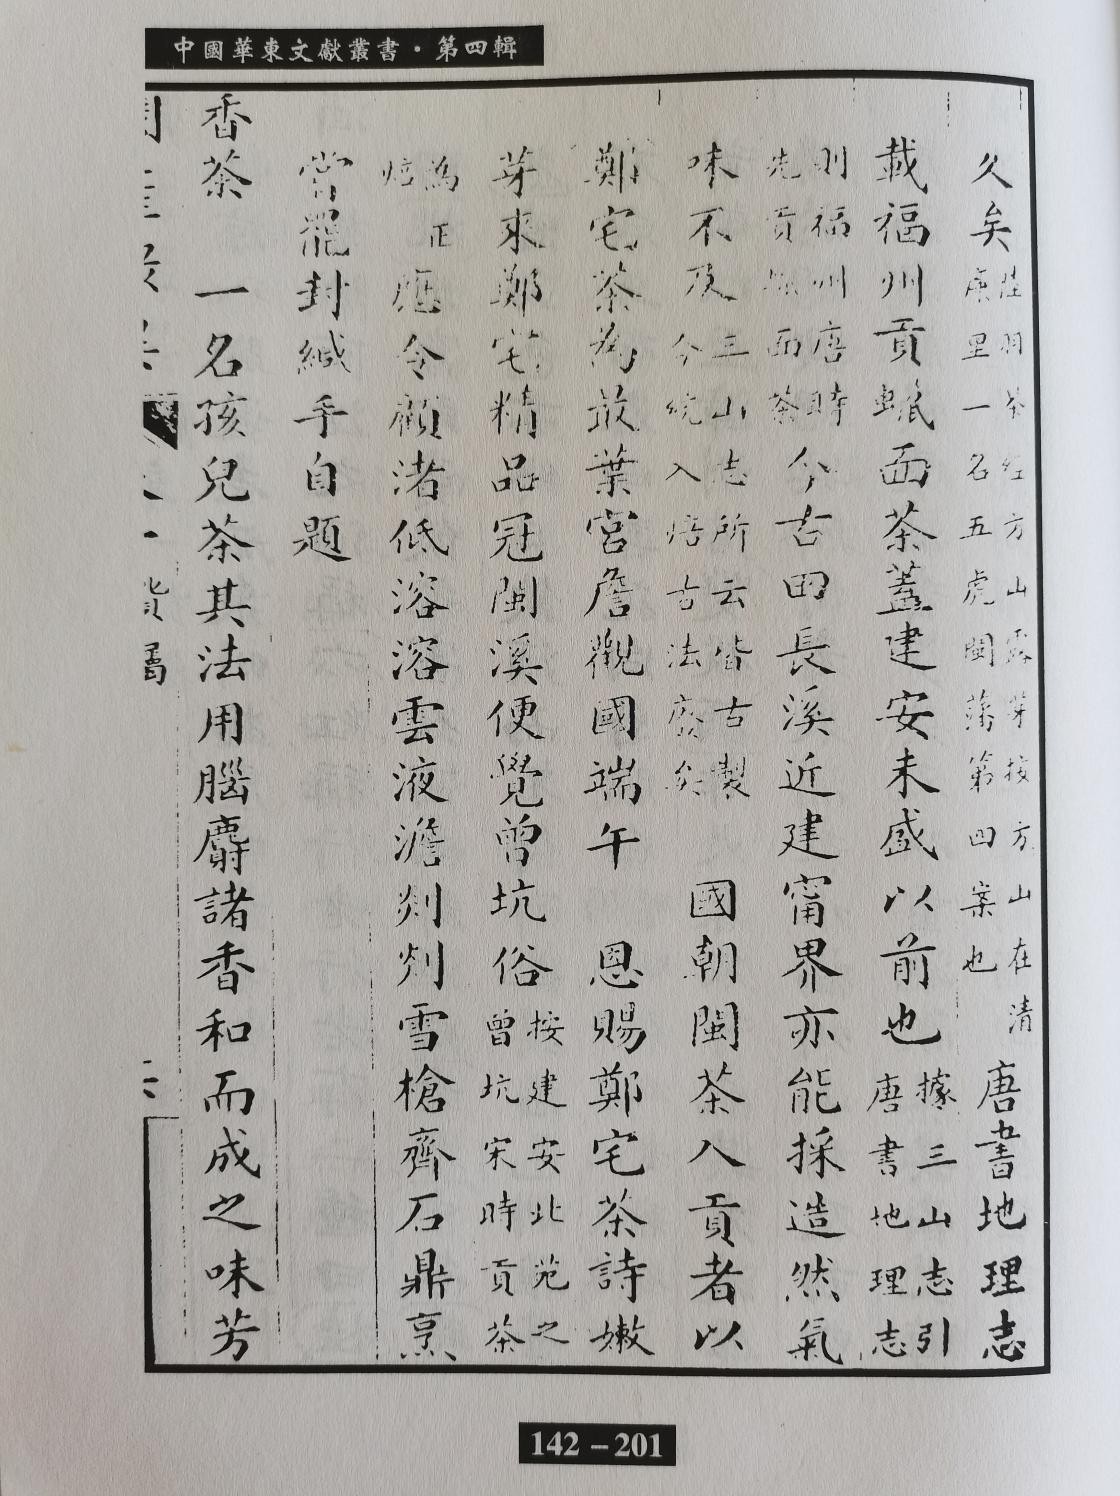 中國華東文獻叢書·第四輯
久矣陸羽茶經方山露芽按方山在清廉里一名五虎閩藩第四案也唐書地理志
載福州貢蠟面茶蓋建安未盛以前也據三山志引唐書地理志
則福州唐時先貢蠟面茶今古田長溪近建甯界亦能採造然氣
味不及三山志所云皆古製今統入焙古法廢矣 國朝閩茶入貢者以
鄭宅茶為最葉宮詹觀國端午 恩賜鄭宅茶詩嫩
芽來鄭宅精品冠閩溪便覺曾坑俗按建安北苑之曾坑宋時貢茶
為正焙應令顧渚低溶溶雲液澹剡剡雪槍齊石鼎烹
嘗罷封緘手自題
香茶 一名孩兒茶其法用腦麝諸香和而成之味芳
貨屬
142-201